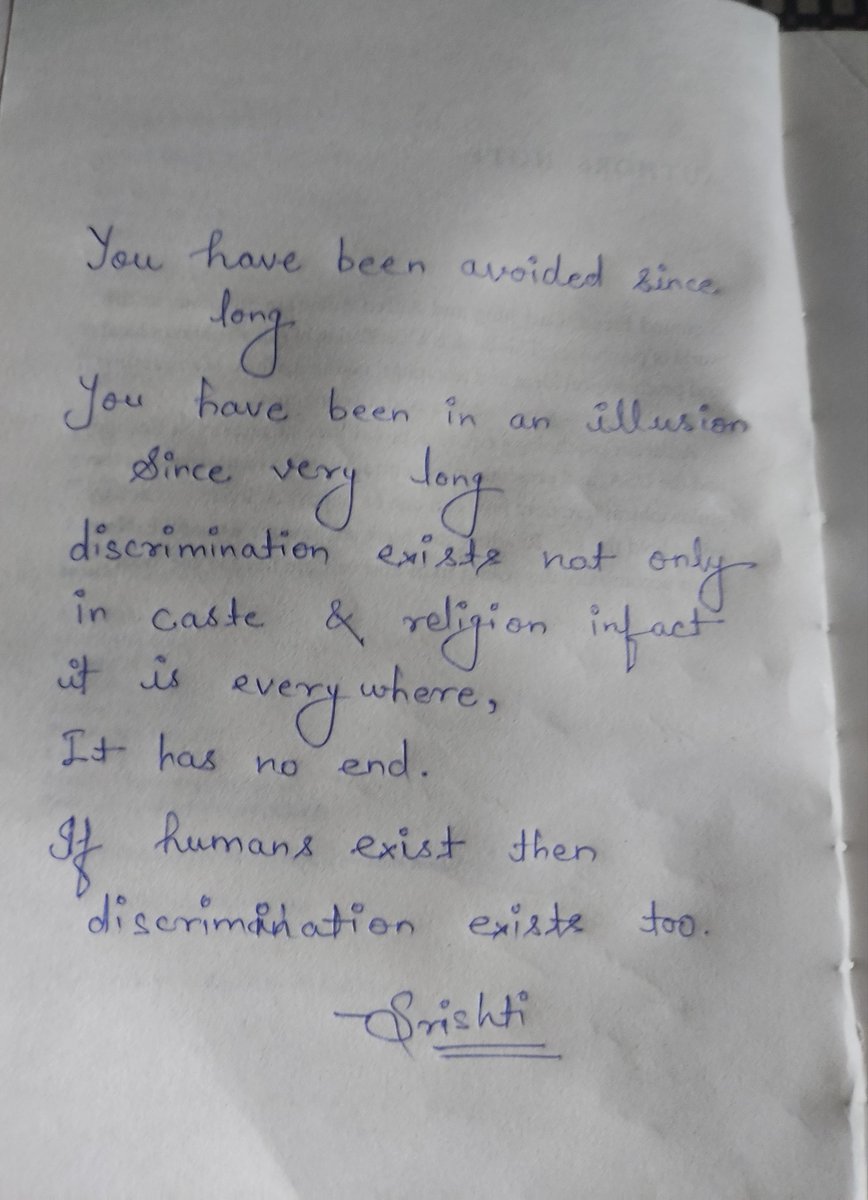 You have been avoided since
long
You have been in an illusion
Since very long
discrimination exists not only
in caste & religion infact
it is everywhere,
It has no end.
If humans exist then
discrimination exists too.
-Srishti